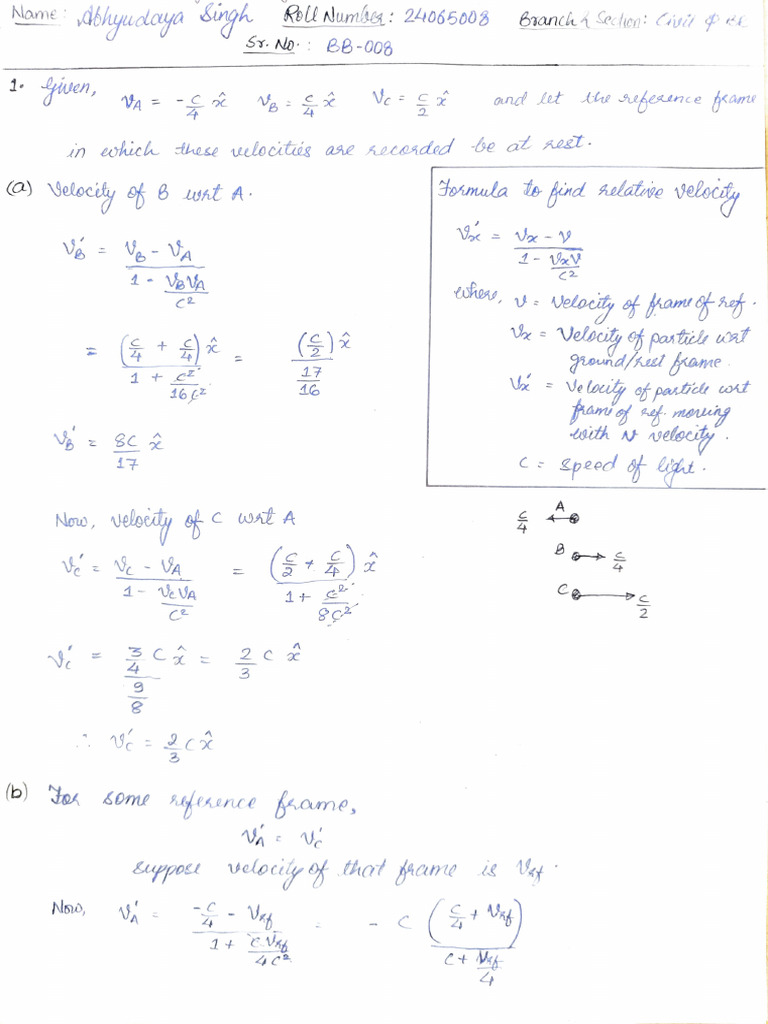 Name: Abhyudaya Singh Roll Number: 24065008 Branch & Section: Civil &
Sr. No. : BB-008
1. Given, v_A = -c/4 x̂ v_B = c/4 x̂ v_C = c/2 x̂ and let the reference frame
in which these velocities are recorded be at rest.
(a) Velocity of B wrt A.
v_B' = (v_B - v_A)/(1 - v_B v_A/c²)
= (c/4 + c/4) x̂/(1 + c²/16c²) = (c/2) x̂/(17/16)
v_B' = 8c/17 x̂
Formula to find relative velocity
v_x' = (v_x - v)/(1 - v_x v/c²)
where, v = velocity of frame of ref.
v_x = velocity of particle wrt
ground/rest frame.
v_x' = velocity of particle wrt
frame of ref. moving
with v velocity.
c = speed of light.
Now, velocity of C wrt A
v_C' = (v_C - v_A)/(1 - v_C v_A/c²) = (c/2 + c/4) x̂/(1 + c²/8c²)
v_C' = (3/4 c x̂)/(9/8) = 2/3 c x̂
∴ v_C' = 2/3 c x̂
c/4 A
B c/4
C c/2
(b) For some reference frame,
v_A' = v_C'
suppose velocity of that frame is v_rf.
Now, v_A' = (-c/4 - v_rf)/(1 + c v_rf/4c²) = - c (c/4 + v_rf)/(c + v_rf/4)